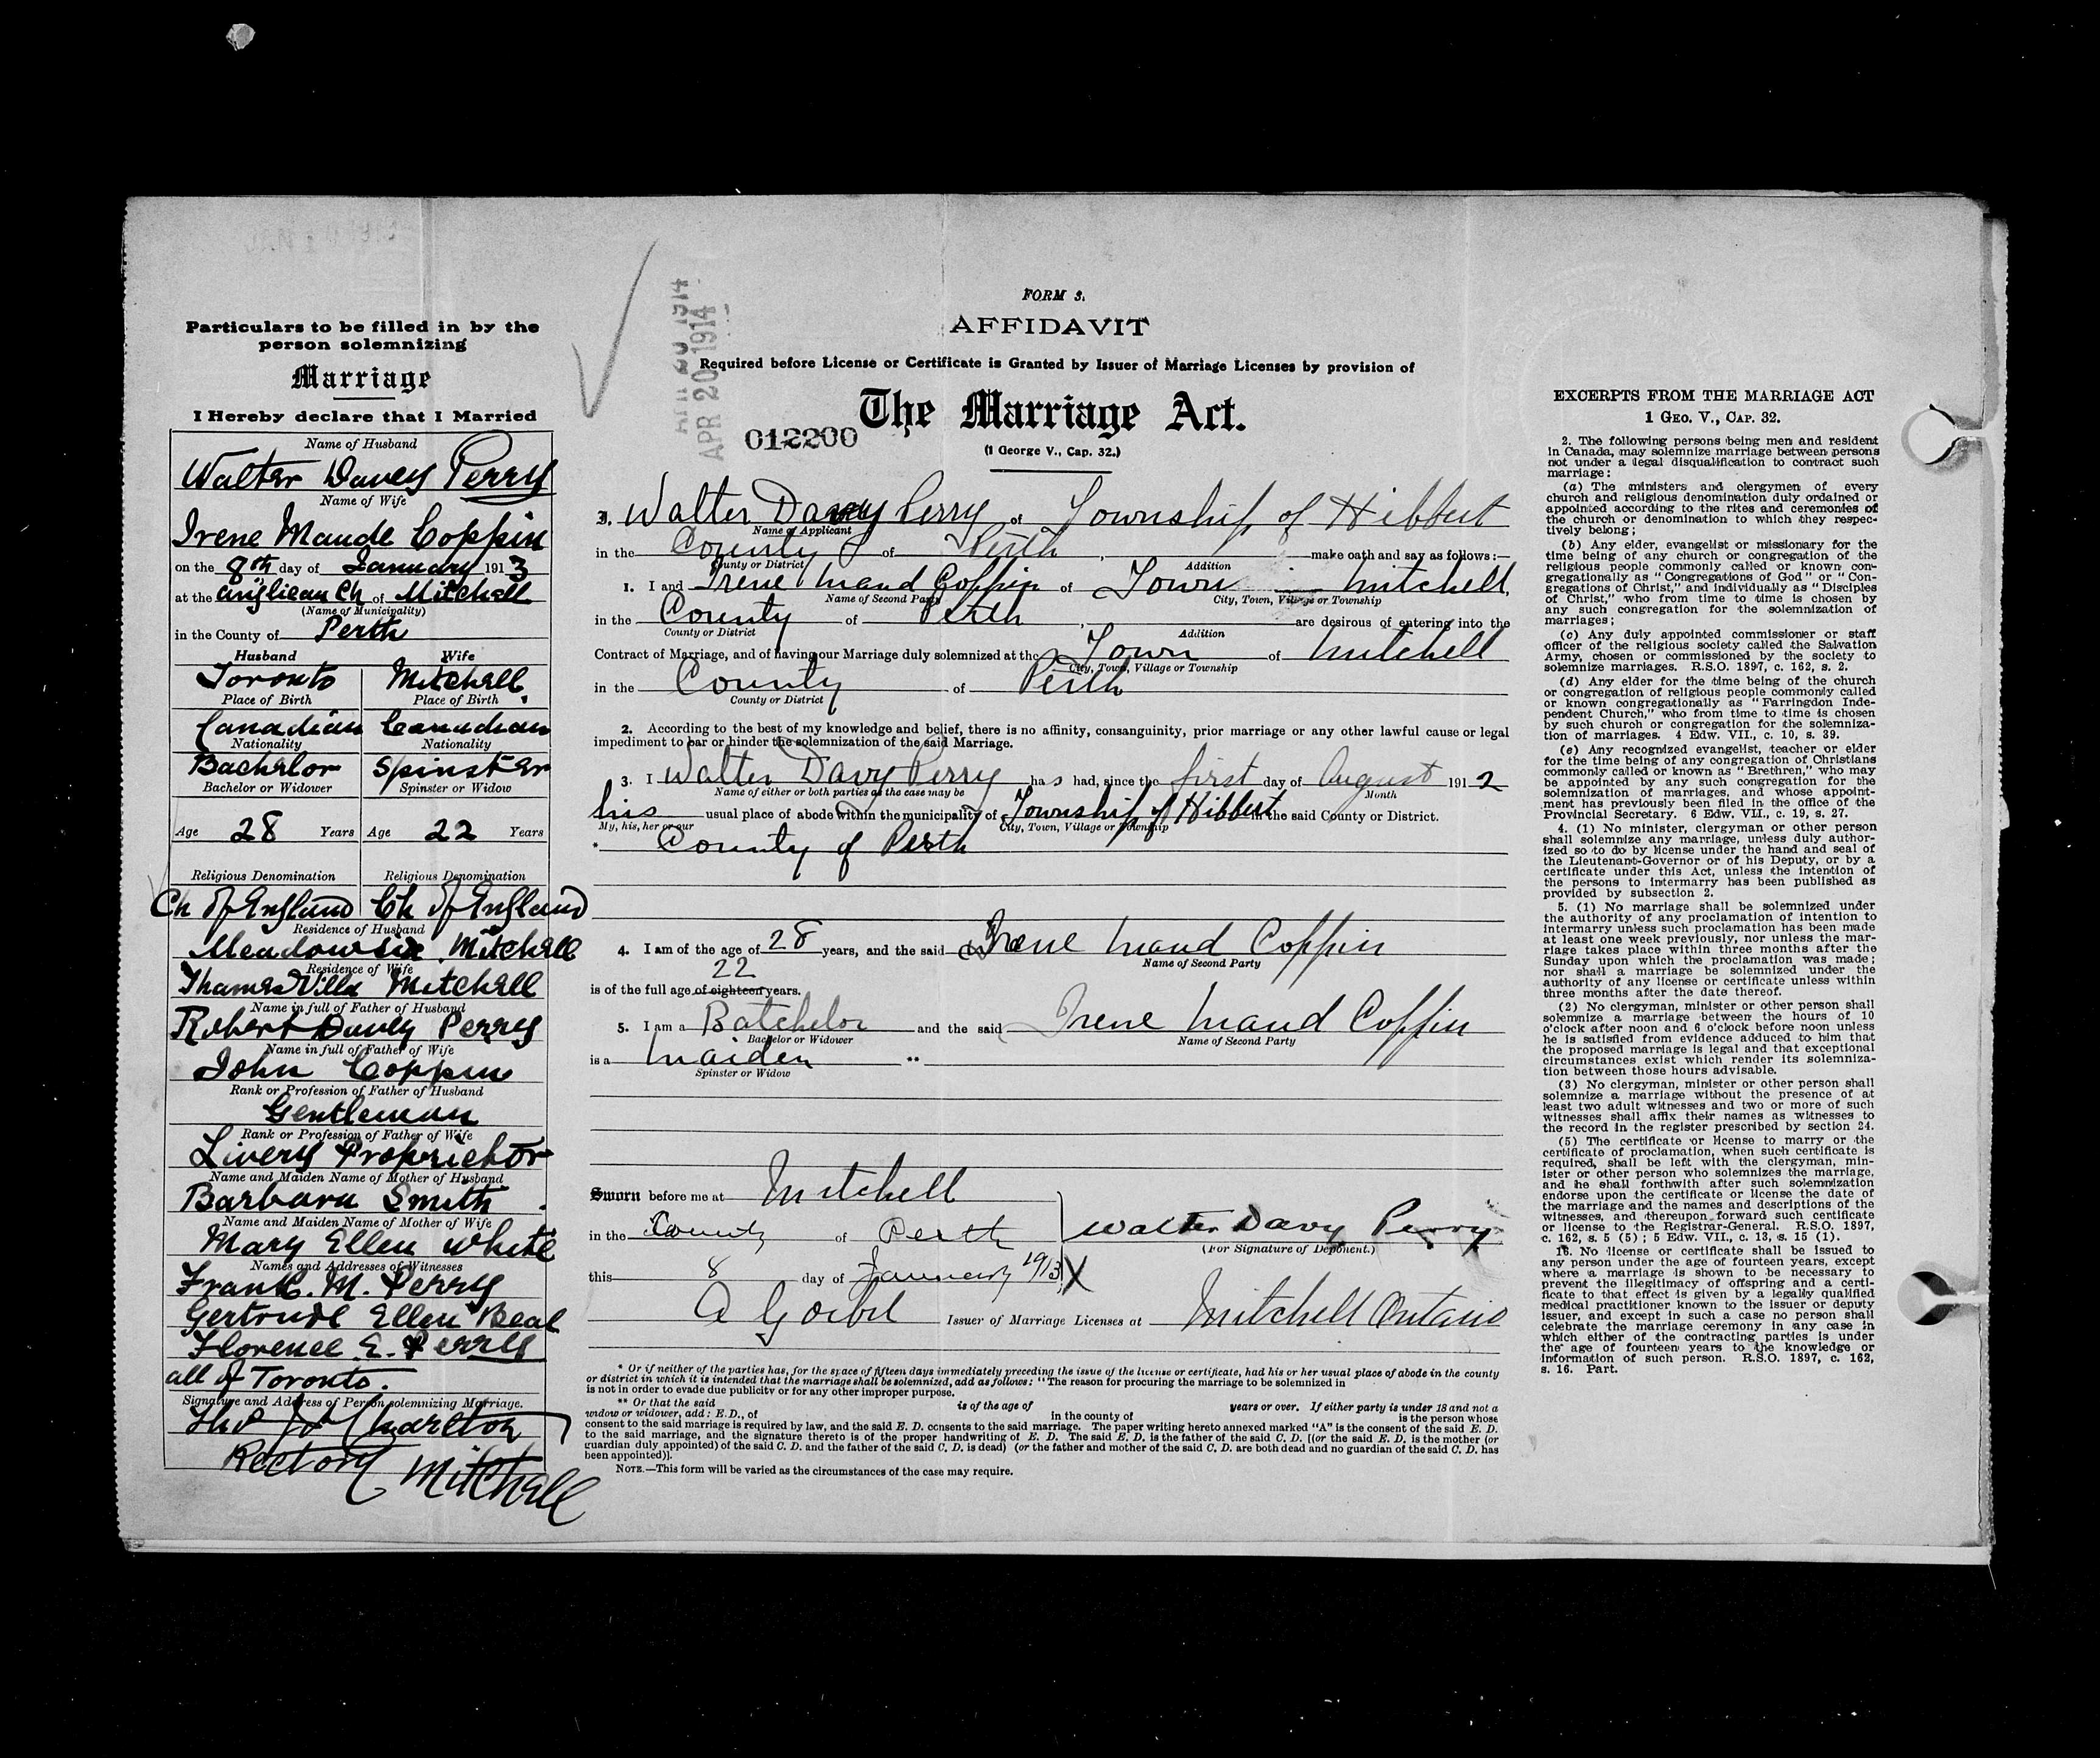 Particulars to be filled in by the
person solemnizing
Marriage
I Hereby declare that I Married
Name of Husband
Walter Davey Perry
Name of Wife
Irene Maude Coppin
on the 8th day of January 1913
at the Anglican Ch of Mitchell
(Name of Municipality)
in the County of Perth
Husband Wife
Toronto Mitchell
Place of Birth Place of Birth
Canadian Canadian
Nationality Nationality
Bachelor Spinster
Bachelor or Widower Spinster or Widow
Age 28 Years Age 22 Years
Religious Denomination Religious Denomination
Ch of England Ch of England
Residence of Husband
Mitchell
Residence of Wife
Thames Villa Mitchell
Name in full of Father of Husband
Robert Davey Perry
Name in full of Father of Wife
John Coppin
Rank or Profession of Father of Husband
Gentleman
Rank or Profession of Father of Wife
Livery Proprietor
Name and Maiden Name of Mother of Husband
Barbara Smith
Name and Maiden Name of Mother of Wife
Mary Ellen White
Names and Addresses of Witnesses
Frank. M. Perry
Gertrude Ellen Beal
Florence E. Perry
all of Toronto.
Signature and Address of Person solemnizing Marriage.
Charlton
Rectory Mitchell
APR 20 1914
APR 20 1914
FORM 3.
AFFIDAVIT
Required before License or Certificate is Granted by Issuer of Marriage Licenses by provision of
The Marriage Act.
012200
(1 George V., Cap. 32.)
I. Walter Davy Perry of Township of Hibbert
Name of Applicant
in the County of Perth, make oath and say as follows:—
County or District Addition
1. I and Irene Maud Coppin of Town Mitchell,
Name of Second Party City, Town, Village or Township
in the County of Perth, are desirous of entering into the
County or District Addition
Contract of Marriage, and of having our Marriage duly solemnized at the Town of Mitchell
City, Town, Village or Township
in the County of Perth
County or District
2. According to the best of my knowledge and belief, there is no affinity, consanguinity, prior marriage or any other lawful cause or legal
impediment to bar or hinder the solemnization of the said Marriage.
3. I Walter Davy Perry has had, since the first day of August 1912
Name of either or both parties as the case may be Month
his usual place of abode within the municipality of Township of Hibbert the said County or District.
My, his, her or our City, Town, Village or Township
* County of Perth
4. I am of the age of 28 years, and the said Irene Maud Coppin
Name of Second Party
22
is of the full age of eighteen years.
5. I am a Batchelor and the said Irene Maud Coppin
Bachelor or Widower Name of Second Party
is a Maiden **
Spinster or Widow
Sworn before me at Mitchell
in the County of Perth Walter Davy Perry
(For Signature of Deponent.)
this 8 day of January 1913 X
Issuer of Marriage Licenses at Mitchell Ontario
* Or if neither of the parties has, for the space of fifteen days immediately preceding the issue of the license or certificate, had his or her usual place of abode in the county
or district in which it is intended that the marriage shall be solemnized, add as follows: "The reason for procuring the marriage to be solemnized in
is not in order to evade due publicity or for any other improper purpose.
** Or that the said is of the age of years or over. If either party is under 18 and not a
widow or widower, add: E.D., of in the county of is the person whose
consent to the said marriage is required by law, and the said E. D. consents to the said marriage. The paper writing hereto annexed marked "A" is the consent of the said E. D.
to the said marriage, and the signature thereto is of the proper handwriting of E. D. The said E. D. is the father of the said C. D. [(or the said E. D. is the mother (or
guardian duly appointed) of the said C. D. and the father of the said C. D. is dead) (or the father and mother of the said C. D. are both dead and no guardian of the said C. D. has
been appointed)].
NOTE.—This form will be varied as the circumstances of the case may require.
EXCERPTS FROM THE MARRIAGE ACT
1 GEO. V., CAP. 32.
2. The following persons being men and resident
in Canada, may solemnize marriage between persons
not under a legal disqualification to contract such
marriage:
(a) The ministers and clergymen of every
church and religious denomination duly ordained or
appointed according to the rites and ceremonies of
the church or denomination to which they respec-
tively belong;
(b) Any elder, evangelist or missionary for the
time being of any church or congregation of the
religious people commonly called or known con-
gregationally as "Congregations of God" or "Con-
gregations of Christ," and individually as "Disciples
of Christ," who from time to time is chosen by
any such congregation for the solemnization of
marriages;
(c) Any duly appointed commissioner or staff
officer of the religious society called the Salvation
Army, chosen or commissioned by the society to
solemnize marriages. R.S.O. 1897, c. 162, s. 2.
(d) Any elder for the time being of the church
or congregation of religious people commonly called
or known congregationally as "Farringdon Inde-
pendent Church," who from time to time is chosen
by such church or congregation for the solemniza-
tion of marriages. 4 Edw. VII., c. 10, s. 39.
(e) Any recognized evangelist, teacher or elder
for the time being of any congregation of Christians
commonly called or known as "Brethren," who may
be appointed by any such congregation for the
solemnization of marriages, and whose appoint-
ment has previously been filed in the office of the
Provincial Secretary. 6 Edw. VII., c. 19, s. 27.
4. (1) No minister, clergyman or other person
shall solemnize any marriage, unless duly author-
ized so to do by license under the hand and seal of
the Lieutenant-Governor or of his Deputy, or by a
certificate under this Act, unless the intention of
the persons to intermarry has been published as
provided by subsection 2.
5. (1) No marriage shall be solemnized under
the authority of any proclamation of intention to
intermarry unless such proclamation has been made
at least one week previously, nor unless the mar-
riage takes place within three months after the
Sunday upon which the proclamation was made;
nor shall a marriage be solemnized under the
authority of any license or certificate unless within
three months after the date thereof.
(2) No clergyman, minister or other person shall
solemnize a marriage between the hours of 10
o'clock after noon and 6 o'clock before noon unless
he is satisfied from evidence adduced to him that
the proposed marriage is legal and that exceptional
circumstances exist which render its solemniza-
tion between those hours advisable.
(3) No clergyman, minister or other person shall
solemnize a marriage without the presence of at
least two adult witnesses and two or more of such
witnesses shall affix their names as witnesses to
the record in the register prescribed by section 24.
(5) The certificate or license to marry or the
certificate of proclamation, when such certificate is
required, shall be left with the clergyman, min-
ister or other person who solemnizes the marriage,
and he shall forthwith after such solemnization
endorse upon the certificate or license the date of
the marriage and the names and descriptions of the
witnesses, and thereupon forward such certificate
or license to the Registrar-General. R.S.O. 1897,
c. 162, s. 5 (5); 5 Edw. VII., c. 13, s. 15 (1).
16. No license or certificate shall be issued to
any person under the age of fourteen years, except
where a marriage is shown to be necessary to
prevent the illegitimacy of offspring and a certi-
ficate to that effect is given by a legally qualified
medical practitioner known to the issuer or deputy
issuer, and except in such a case no person shall
celebrate the marriage ceremony in any case in
which either of the contracting parties is under
the age of fourteen years to the knowledge or
information of such person. R.S.O. 1897, c. 162,
s. 16. Part.